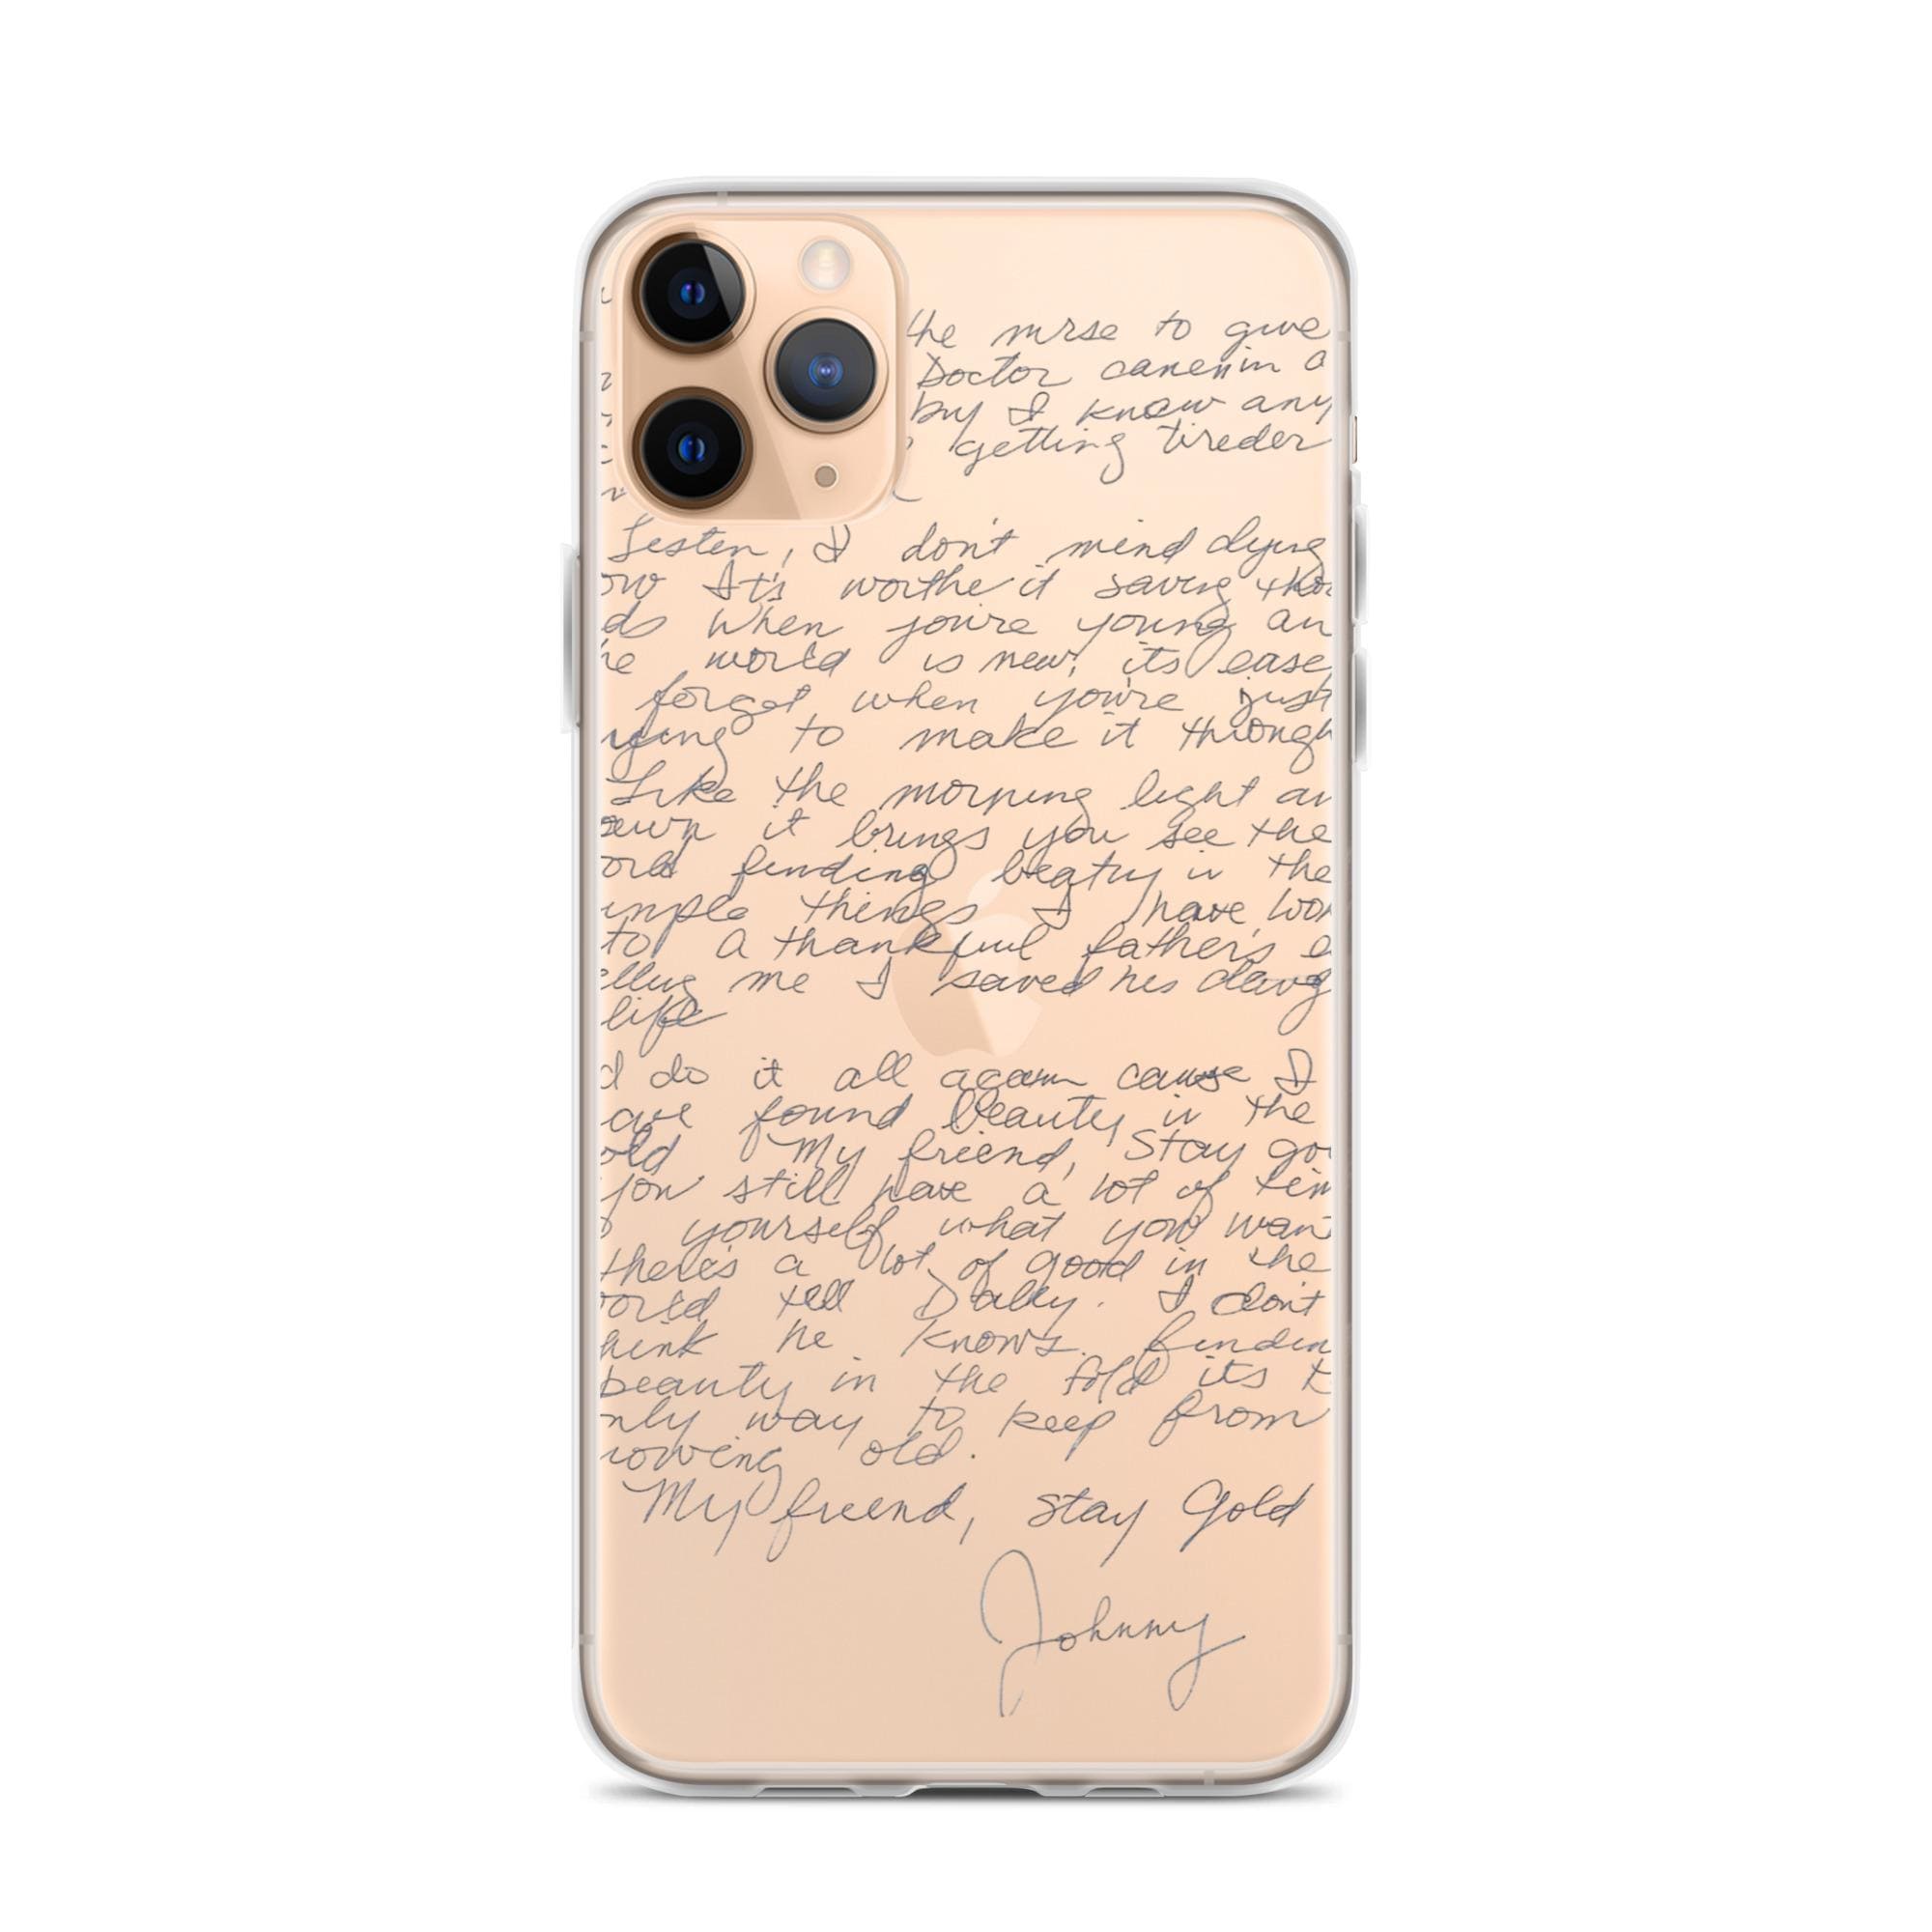 the nurse to give
Doctor came in a
by I knew any
getting tireder
Listen, I don't mind dying
ow It's worthe it saving tho
ds When you're young an
he world is new, its ease
forget when you're just
rying to make it through
Like the morning light an
awn it brings you see the
old finding beatuy in the
imple things I have loo
to a thankful father's e
elling me I saved his daug
life
d do it all again cause I
ave found beauty in the
old My friend, Stay go
You still have a lot of tim
o yourself what you wan
there's a lot of good in the
orld tell Dally. I don't
hink he knows. findin
beauty in the fold its t
nly way to keep from
rowing old.
My friend, stay Gold
Johnny